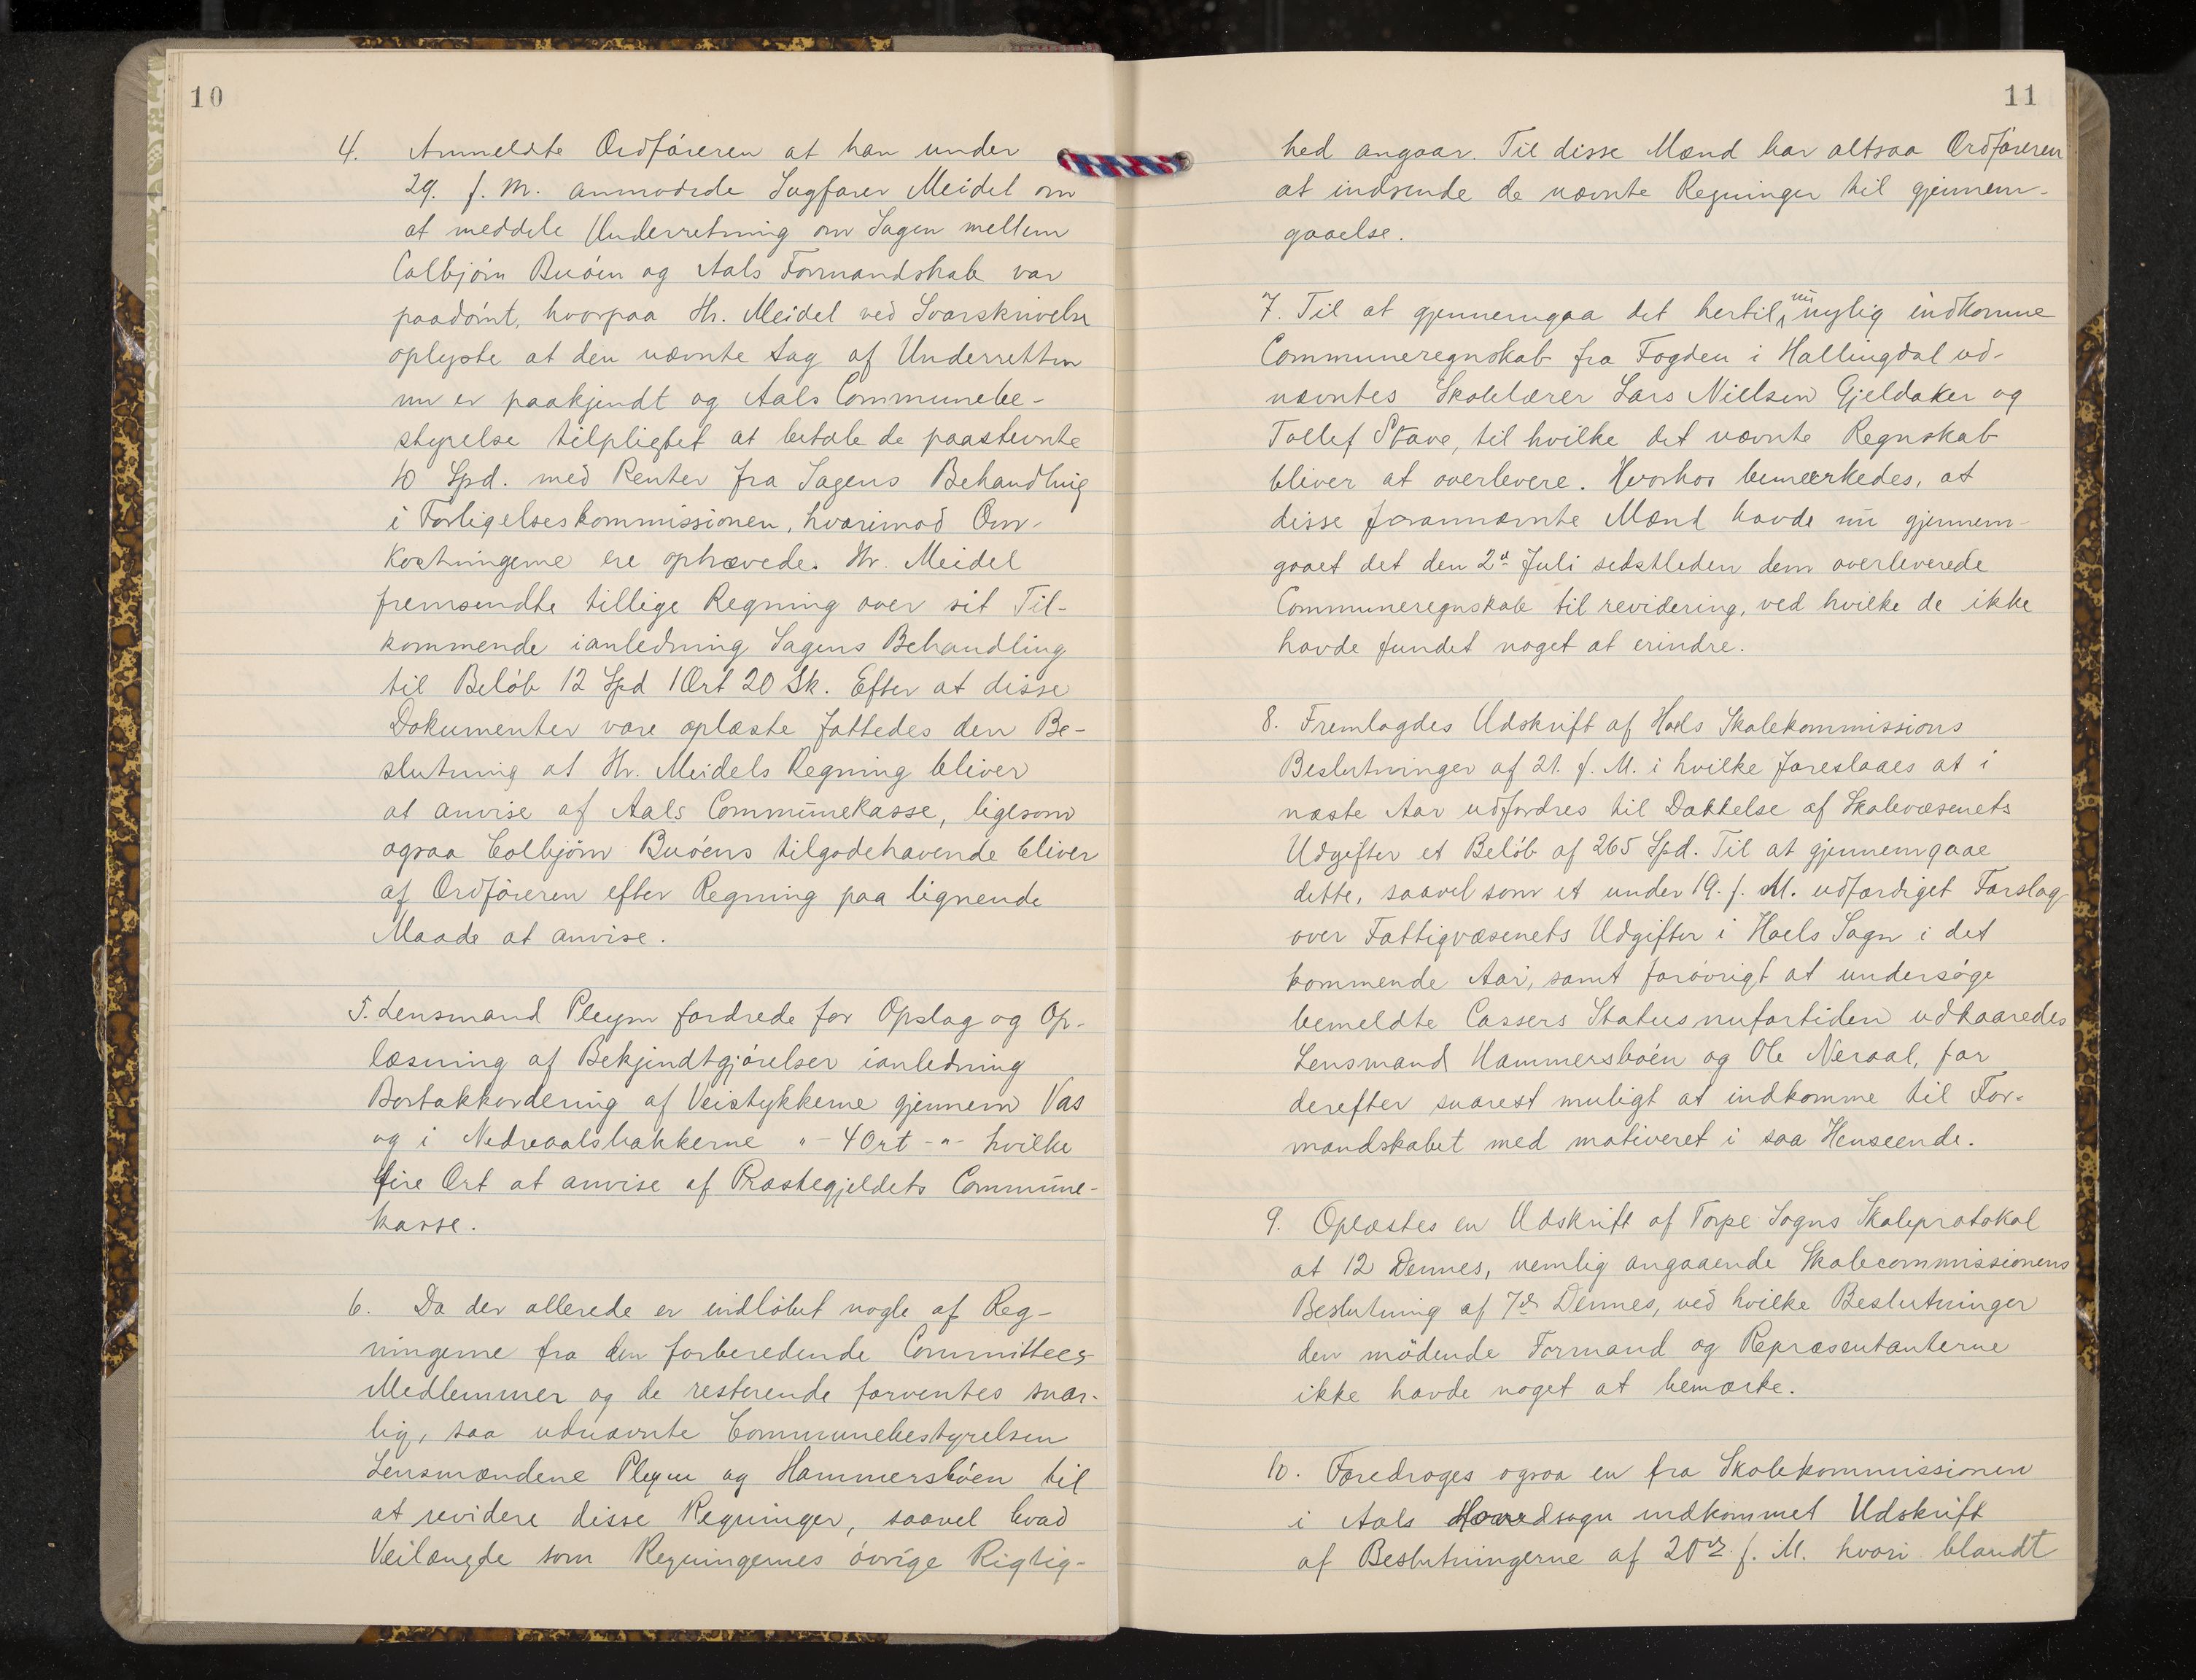 10
4. Anmeldte Ordføreren at han under
29. f. M. anmodede Sagfører Meidel om
at meddele Underretning om Sagen mellem
Colbjörn Buóen og Aals Formandskab var
paadömt, hvorpaa Hr. Meidel ved Svarskrivelse
oplyste at den nævnte Sag af Underretten
nu er paakjendt og Aals Communebe-
styrelse tilpligtet at betale de paastevnte
10 Spd. med Renter fra Sagens Behandling
i Forligelseskommissionen, hvorimod Om-
kostningerne ere ophævede. Hr. Meidel
fremsendte tillige Regning over sit Til-
kommende ianledning Sagens Behandling
til Belöb 12 Spd 1 Ort 20 Sk. Efter at disse
Dokumenter vare oplæste fattedes den Be-
slutning at Hr. Meidels Regning bliver
at anvise af Aals Communekasse, ligesom
ogsaa Colbjörn Buóens tilgodehavende bliver
af Ordföreren efter Regning paa lignende
Maade at anvise.
5. Lensmand Pleym fordrede for Opslag og Op-
læsning af Bekjendtgjörelser ianledning
Bortakkordering af Veistykkerne gjennem Vas
og i Nedreaalsbakkerne " - 4 Ort - " - hvilke
fire Ort at anvise af Præstegjeldets Commune-
kasse.
6. Da der allerede er indlöbet nogle af Reg-
ningerne fra den forberedende Committees
Medlemmer og de resterende forventes snar-
lig, saa udnævnte Communebestyrelsen
Lensmændene Pleym og Hammersböen til
at revidere disse Regninger, saavel hvad
Veilængde som Regningernes övrige Rigtig-
11
hed angaar. Til disse Mænd har altsaa Ordföreren
at indsende de nævnte Regninger til gjennem-
gaaelse.
7. Til at gjennemgaa det hertil nu nylig indkomne
Communeregnskab fra Fogden i Hallingdal ud-
nævntes Skolelærer Lars Nielsen Gjeldaker og
Tollef Skave, til hvilke det nævnte Regnskab
bliver at overlevere. Hvorhos bemærkedes, at
disse forannævnte Mænd havde nu gjennem-
gaaet det den 2d Juli sidstleden dem overleverede
Communeregnskab til revidering, ved hvilke de ikke
havde fundet noget at erindre.
8. Fremlagdes Udskrift af Hols Skolekommissions
Beslutninger af 21. f. M. i hvilke foreslaaes at i
næste Aar udfordres til Dækkelse af Skolevæsenets
Udgifter et Belöb af 265 Spd. Til at gjennemgaae
dette, saavel som et under 19. f. M. udfærdiget Forslag
over Fattigvæsenets Udgifter i Hols Sogn i det
kommende Aar, samt forövrigt at undersöge
bemeldte Cassers Status nufortiden udkaaredes
Lensmand Hammersböen og Ole Neraal, for
derefter snarest muligt at indkomme til For-
mandskabet med motiveret i saa Henseende.
9. Oplæstes en Udskrift af Torpe Sogns Skoleprotokol
at 12 Dennes, nemlig angaaende Skolecommissionens
Beslutning af 7de Dennes, ved hvilke Beslutninger
den mödende Formand og Repræsentanterne
ikke havde noget at bemærke.
10. Foredroges ogsaa en fra Skolekommissionen
i Aals Hovedsogn indkommet Udskrift
af Beslutningerne af 20de f. M. hvori blandt